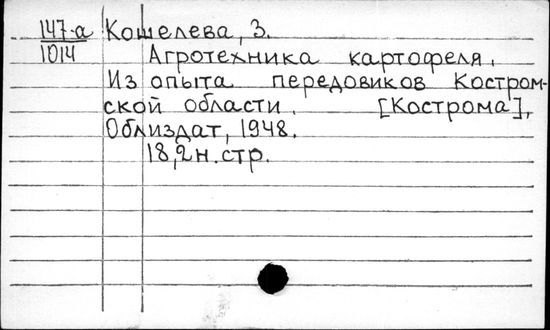 147-а Кошелева, З.
1014 Агротехника картофеля.
Из опыта передовиков Костром-
ской области. [Кострома],
Облиздат, 1948.
18,2н.стр.